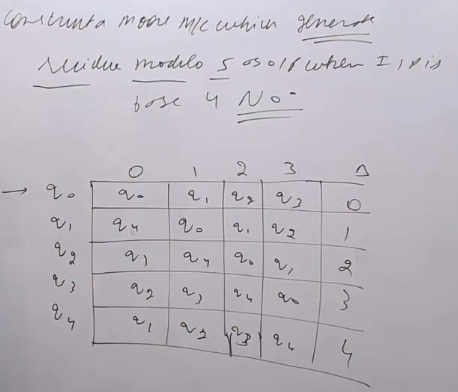 Construct a moore m/c which generate
residue modelo 5 as o/p when I/p is
base 4 No.
0 1 2 3 Δ
→ q0 q0 q1 q2 q3 0
q1 q4 q0 q1 q2 1
q2 q3 q4 q0 q1 2
q3 q2 q3 q4 q0 3
q4 q1 q2 q3 q4 4